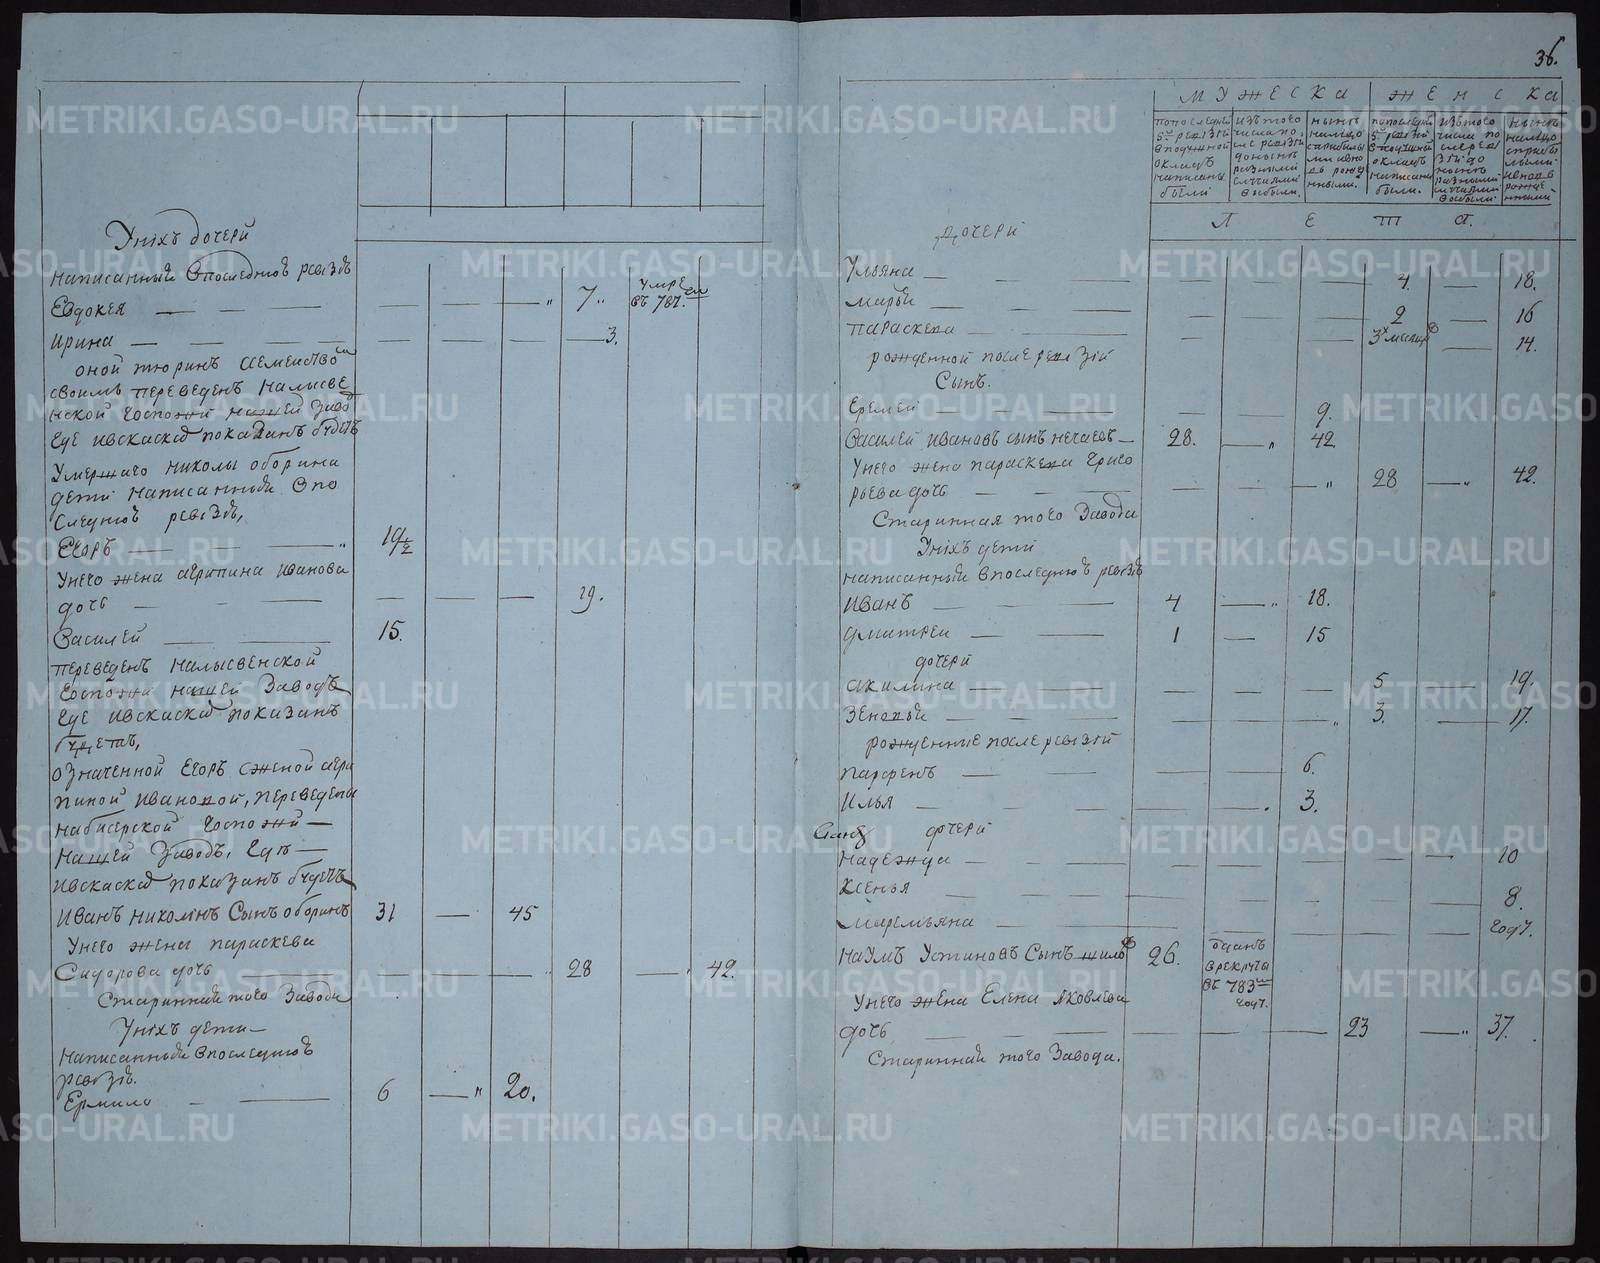 Унихъ дочери
написанныи впоследнюю ревизъ
Евдокея — — — — — — „ 7 „ умре въ 787.
Ирина — — — — — 3.
оной тюринъ
своимъ переведенъ налысве
нской госпожи нашей завод
где
Умершаго николы оборина
дети написанныи впо
следнюю ревизъ,
Егоръ — — „ 19 1/2
Унего жена агрипина иванова
дочь — — — — — 19.
Василей — — 15.
переведенъ налысвенской
госпожи нашей заводъ
где показанъ
будетъ,
означенной Егоръ сженой агри
пиной ивановой, переведены
набисерской госпожи —
нашей заводъ, где —
показанъ будетъ
Иванъ николинъ сынъ оборинъ 31 — 45
Унего жена параскева
Сидорова дочь — — — „ 28 — „ 42.
Старинная того завода
Унихъ дети —
написанныи впоследнюю
ревизъ.
Ермило — — 6 — „ 20.
36.
МУЖЕСКА ЖЕНСКА
попоследней 5й ревизии вподушной окладъ написаны были
изътого числа после ревизии доныне разными случаями выбыли.
ныне налицо
попоследней 5й ревизии вподушной окладъ написаны были.
изътого числа после ревизии доныне разными случаями выбыли
ныне налицо
ЛЕТА.
Дочери
Ульяна — — — — — — 4. — 18.
марья — — — — — 2 — 16
параскева — — — — — 3х — 14.
рожденной после ревизии
Сынъ.
Еремей — — — — 9.
Василей ивановъ сынъ нечаевъ — 28. — „ 42
Унего жена параскева григо
рьева дочь — — — — — — „ 28 — „ 42.
Старинная того завода
Унихъ дети
написанныи впоследнюю ревизъ
Иванъ — — 4 — „ 18.
дмитреи — — 1 — 15
дочери
акилина — — — — — 5 — 19.
Зеновья — — — — „ 3. — 17.
рожденные после ревизии
парфенъ — — — — 6.
Илья — — — — — . 3.
дочери
надежда — — — — — — — — 10
Ксенья — — — — — — — — 8.
маремьяна — — — — — — — — годъ.
Наумъ Устиновъ Сынъ 26. отданъ врекруты въ 783м годъ.
Унего жена Елена яковлева
дочь — — — — — — 23 — „ 37.
Старинная того завода.
METRIKI.GASO-URAL.RU